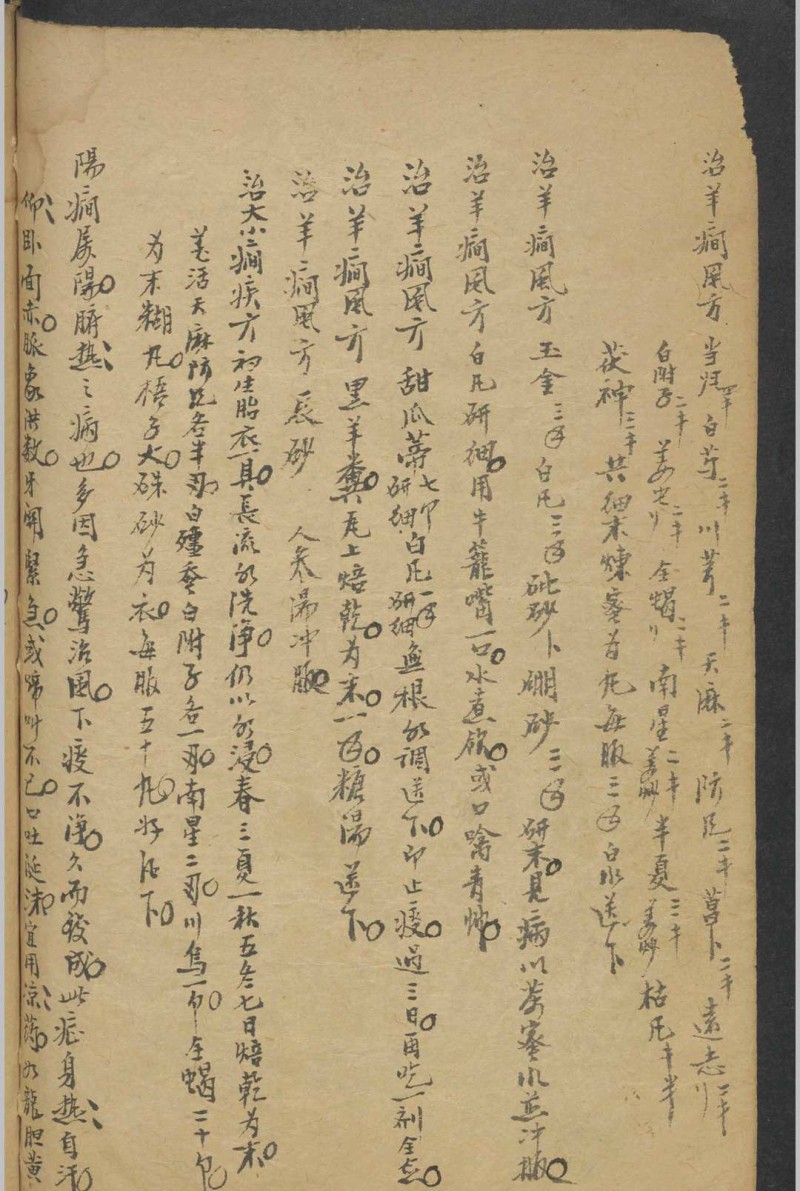 治羊癎風方 当归 白芍二十 川芎二十 天麻二十 防風二十 菖卜二十 遠志
白附子二十 姜虫二十 全蝎 南星姜炒二十 半夏姜炒三十 枯凡十半
茯神三十 共細末煉蜜為丸每服三錢白水送下
治羊癎風方 玉金三錢 白凡三錢 砒砂卜 硼砂三錢 研末見病以蜜水冲服
治羊癎風方 白凡研細用牛籠嘴一口水煮飲或口噙青帅
治羊癎風方 甜瓜蒂七个研細白凡一錢研細無根水調送下即止痰過三日再吃一剂全
治羊癎風方 黑羊糞瓦上焙乾為末一錢糖湯送下
治羊癎風方 辰砂 人參湯冲服
治大小癎疾方 初生胎衣一具長流水洗净仍以水浸春三夏一秋五冬七日焙乾為末
羌活天麻防風各半两白殭蚕白附子各一两南星二两川烏一个全蝎二十个
为末糊丸梧子大硃砂为衣每服五十丸好酒下
陽癎屬陽臍热之病也多因急驚治風下痰不净久而發成此症身热自汗
仰卧面赤脈象洪数牙関緊急或啼叫不已口吐涎沫宜用凉药如龍胆黄